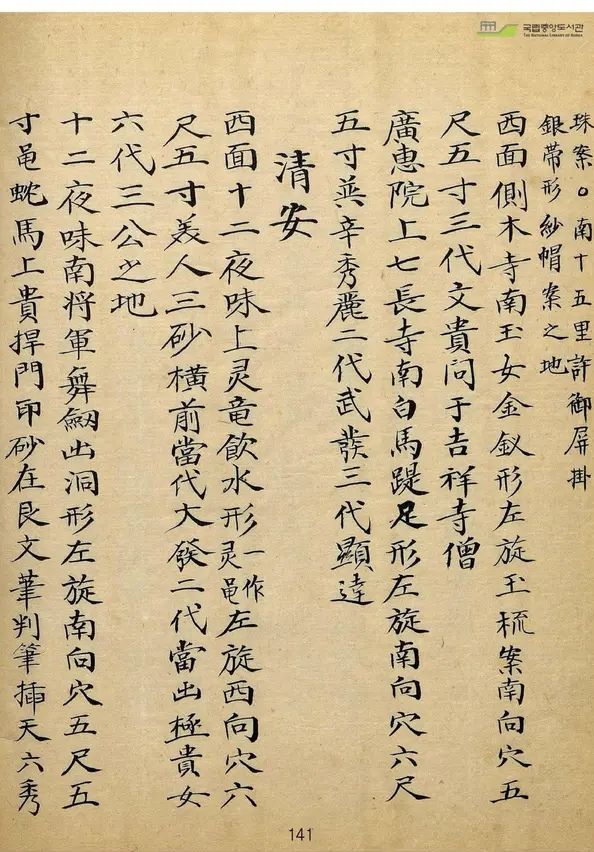 국립중앙도서관
THE NATIONAL LIBRARY OF KOREA
珠案○南十五里許御屛掛
銀帶形紗帽案之地
西面側木寺南玉女金釵形左旋玉梳案南向穴五
尺五寸三代文貴问于吉祥寺僧
廣惠院上七長寺南白馬踶足形左旋南向穴六尺
五寸並辛秀麗二代武發三代顯達
清安
西面十二夜味上灵竜飮水形一作灵黾左旋西向穴六
尺五寸美人三砂橫前當代大發二代當出極貴女
六代三公之地
十二夜味南将軍舞劒出洞形左旋南向穴五尺五
寸黾蛇馬上貴捍門印砂在艮文筆判筆揷天六秀
141